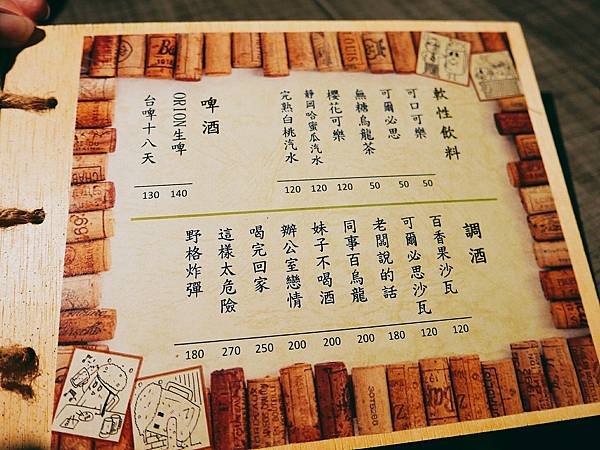 軟性飲料
可口可樂 50
可爾必思 50
無糖烏龍茶 50
櫻花可樂 120
靜岡哈蜜瓜汽水 120
完熟白桃汽水 120
啤酒
ORION生啤 140
台啤十八天 130
調酒
百香果沙瓦 120
可爾必思沙瓦 120
老闆說的話 180
同事百烏龍 200
妹子不喝酒 200
辦公室戀情 200
喝完回家 250
這樣太危險 270
野格炸彈 180